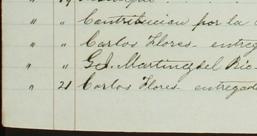 " " Contribucion por la
" " Carlos Flores entreg
" " G. J. Martinez del Rio
" 21 Carlos Flores entregad